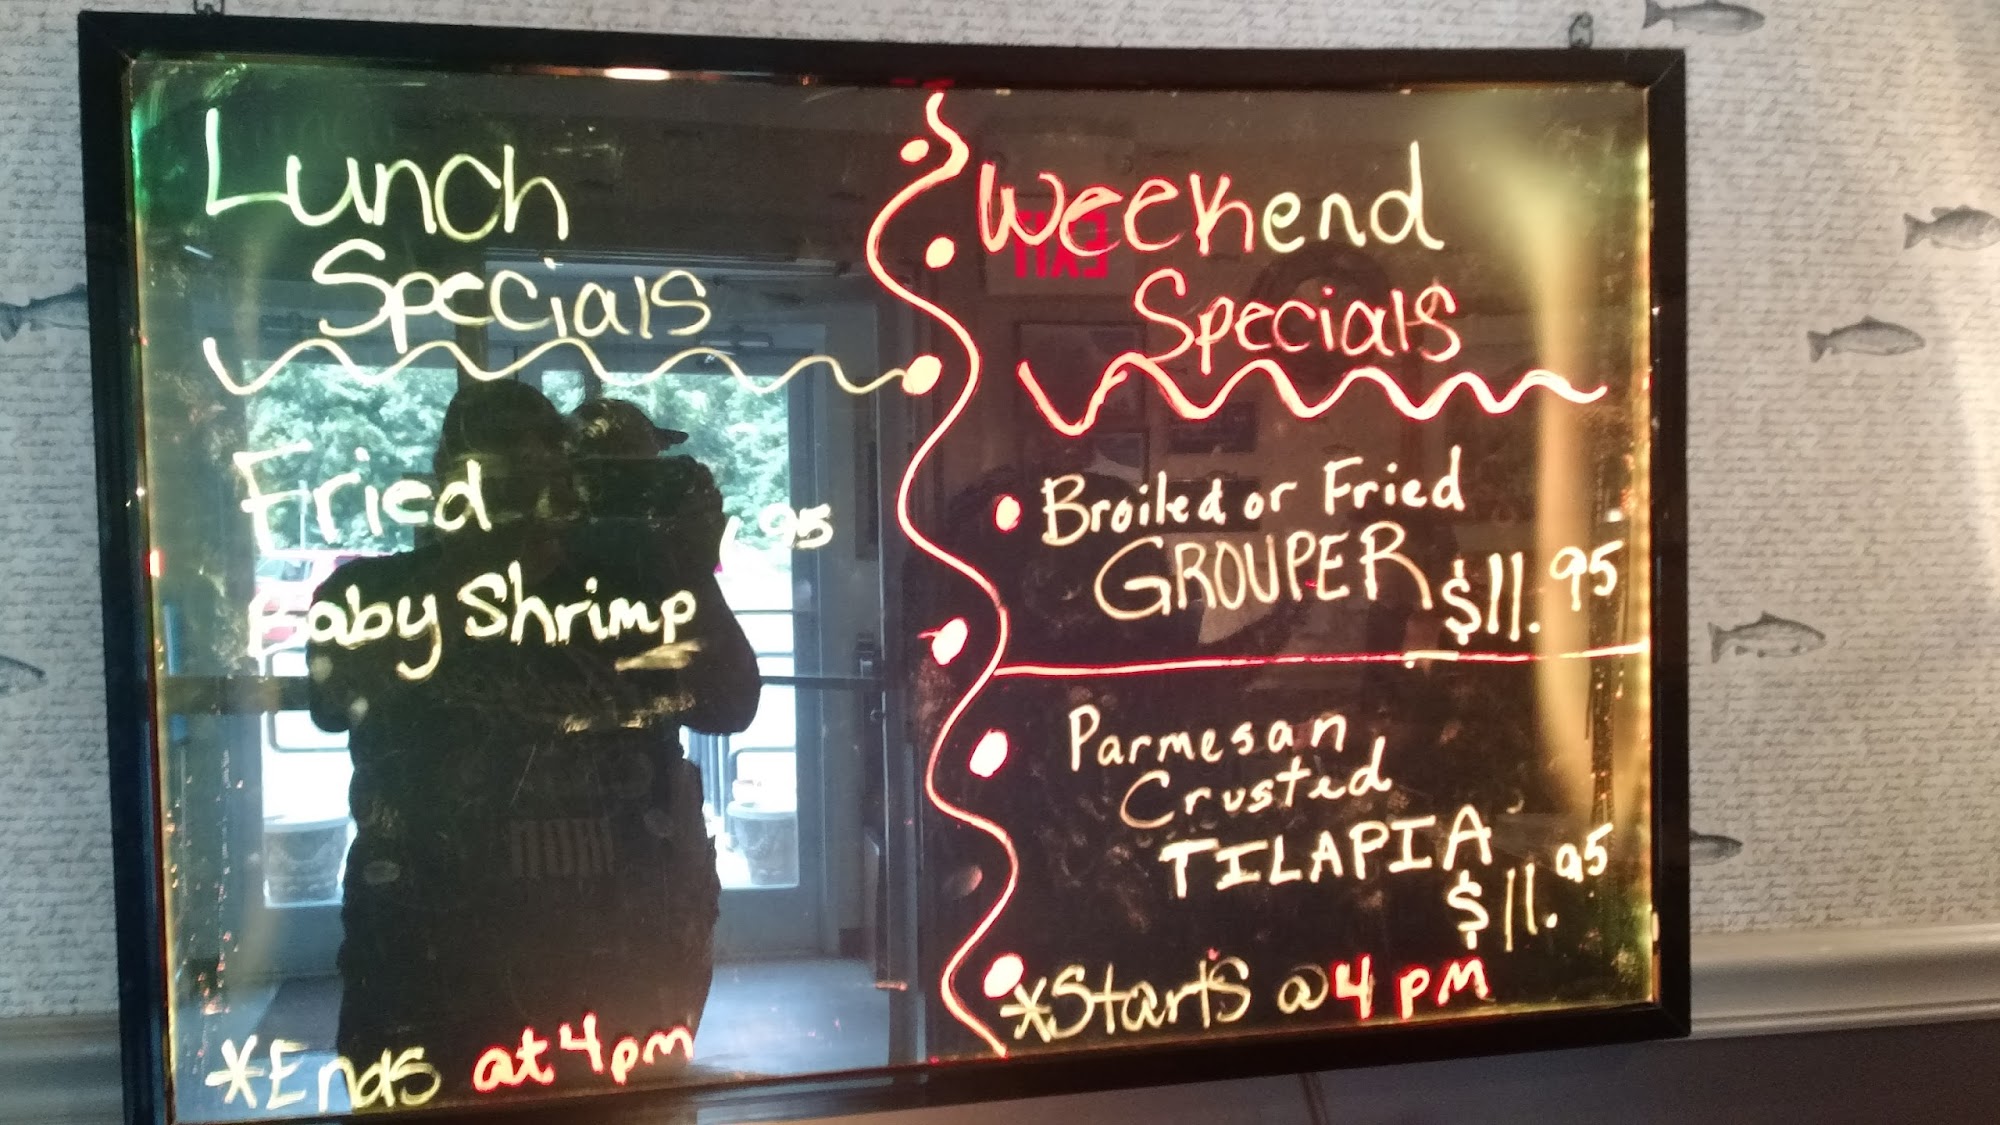 Lunch
Specials
Fried
.95
Baby Shrimp
*Ends at 4pm
Weekend
Specials
Broiled or Fried
GROUPER $11.95
Parmesan
Crusted
TILAPIA
$11.95
*Starts @ 4 pm
EXIT